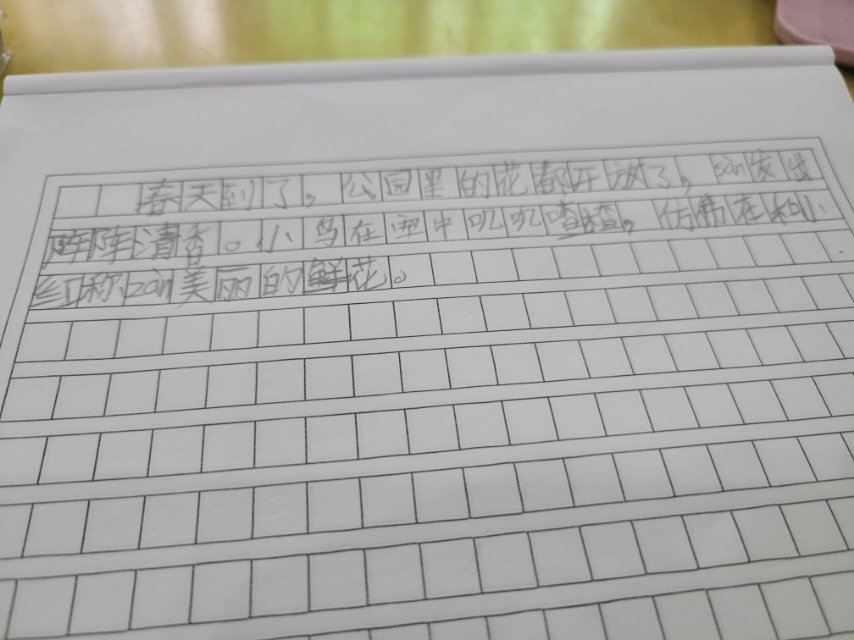 春天到了，公园里的花都开放了，sàn发出
阵阵清香。小鸟在空中叽叽喳喳，仿佛在和小
红称zàn美丽的鲜花。